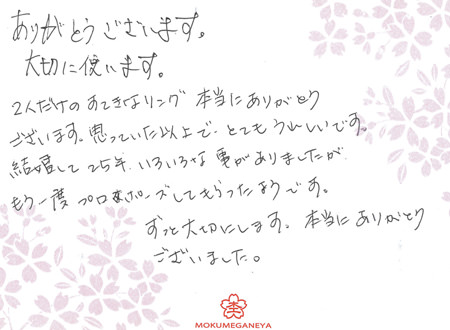 ありがとうございます。
大切に使います。
2人だけのすてきなリング 本当にありがとう
ございます。思っていた以上で、とてもうれしいです。
結婚して25年、いろいろな事がありましたが
もう一度プロポーズしてもらったようです。
ずっと大切にします。本当にありがとう
ございました。
MOKUMEGANEYA